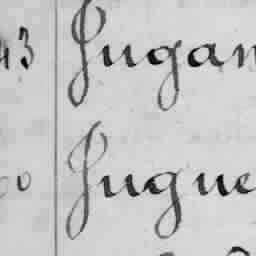 43 Jugan
0 Jugue